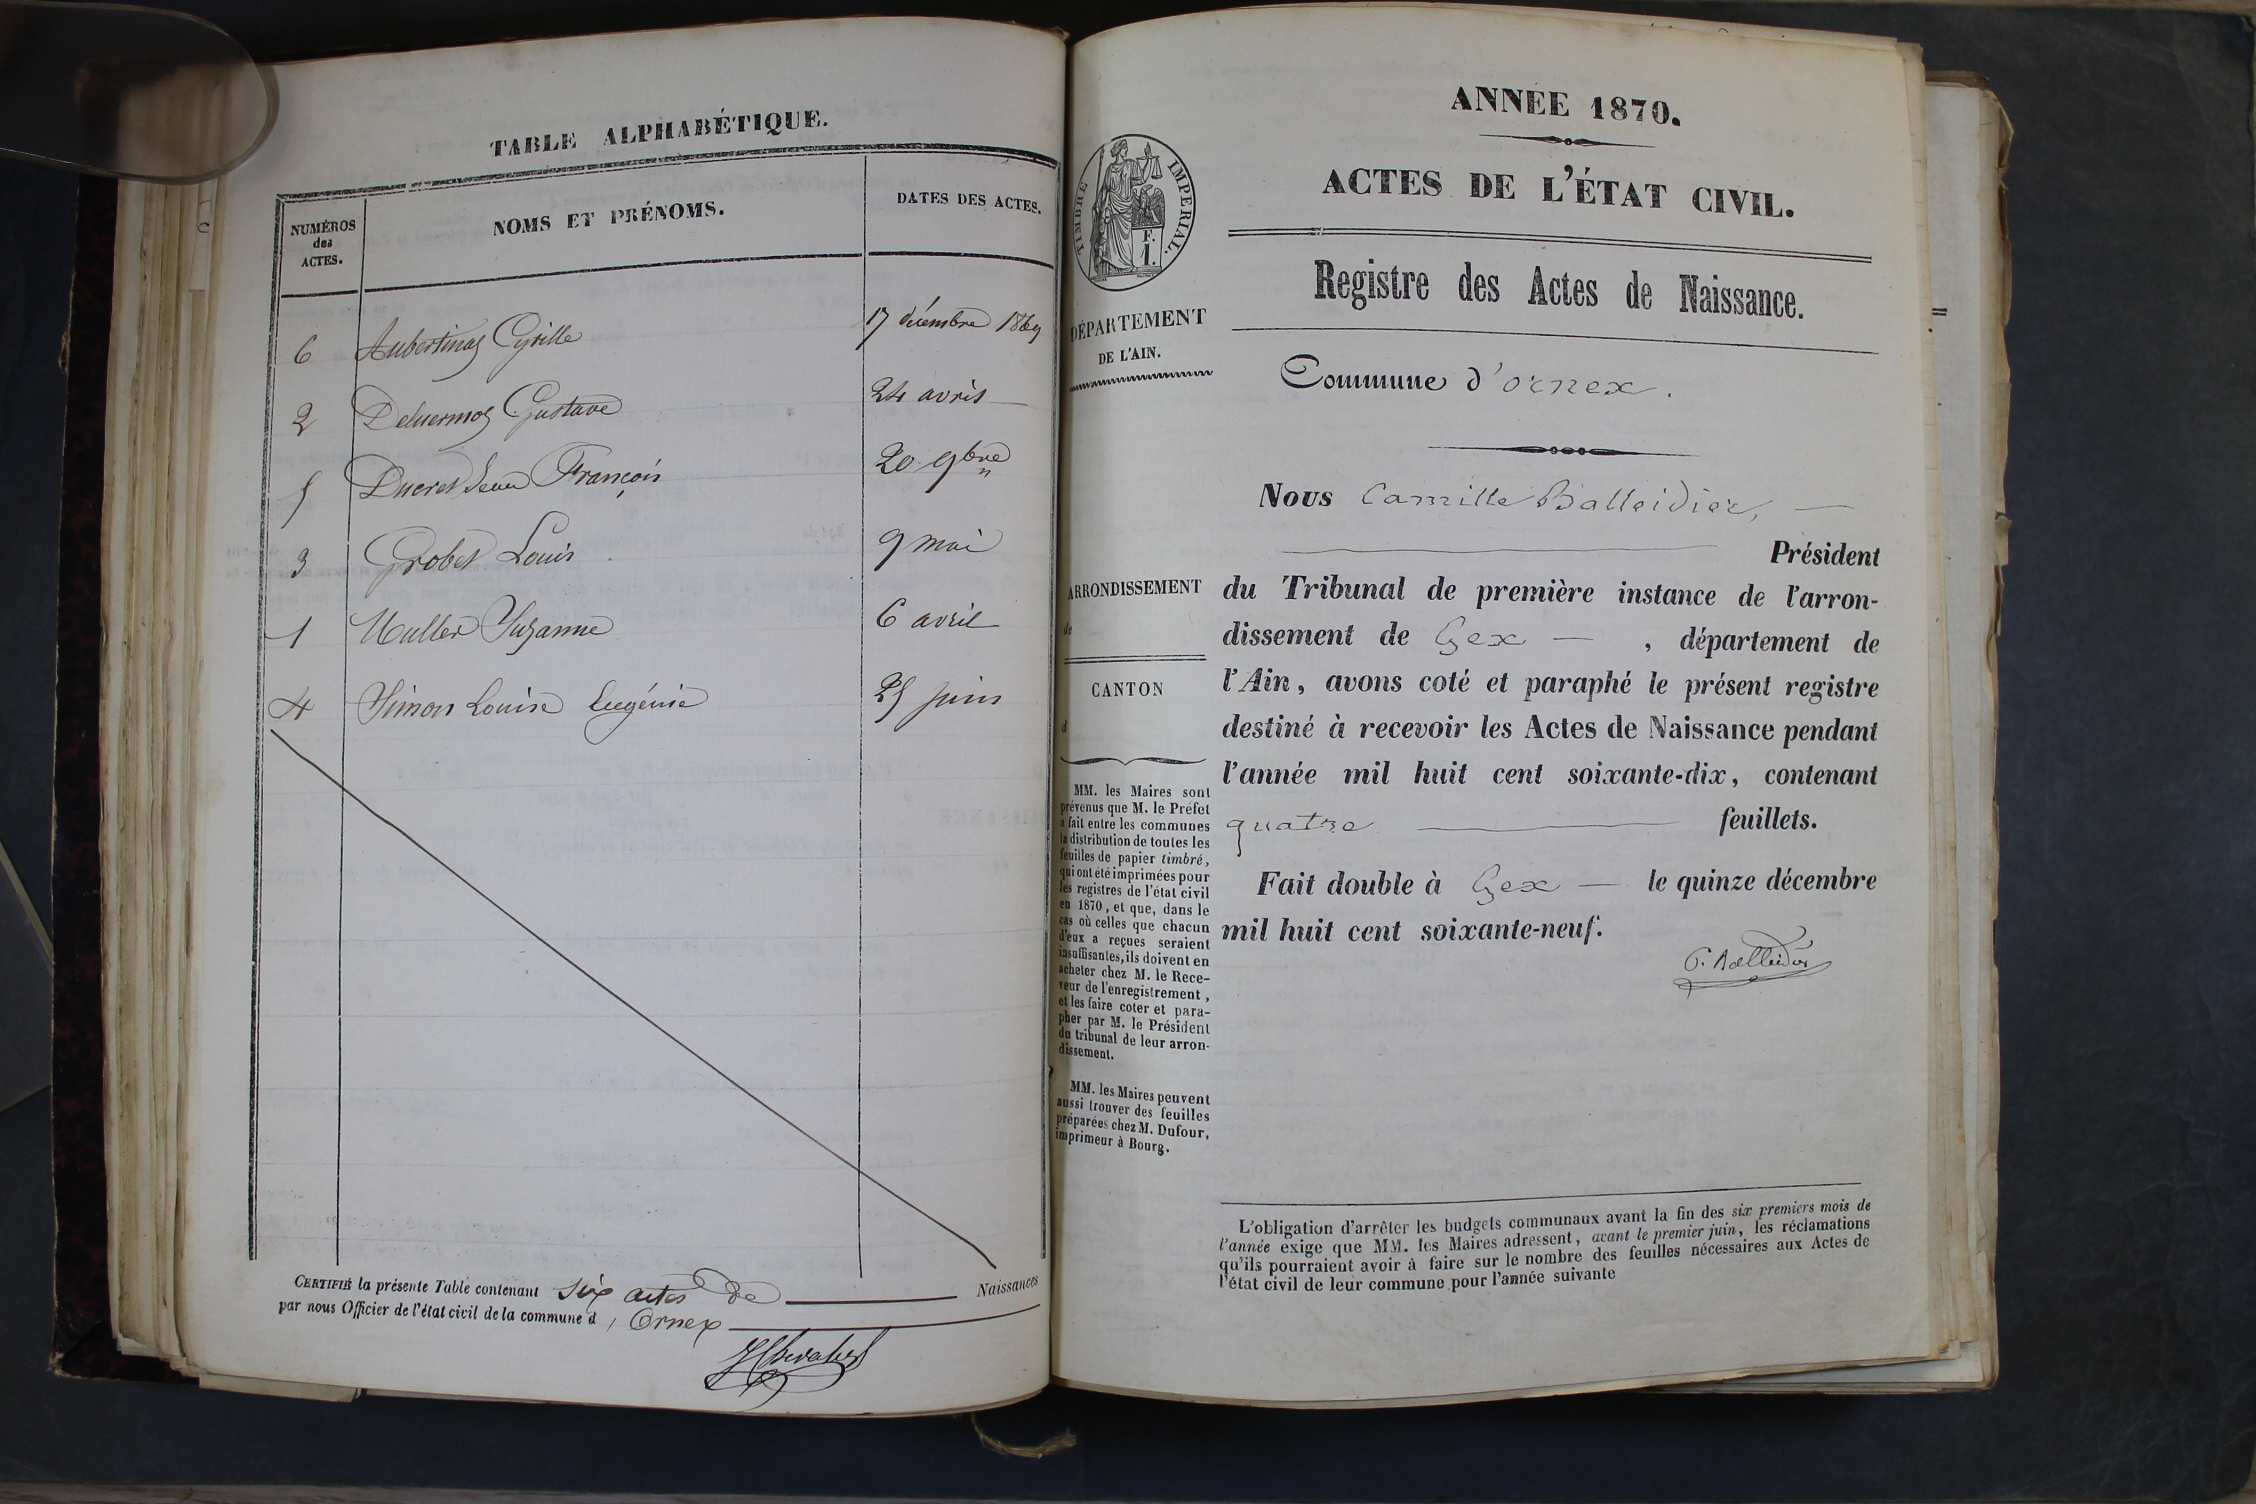 TABLE ALPHABÉTIQUE.
NUMÉROS
des
ACTES.
NOMS ET PRÉNOMS.
DATES DES ACTES.
6 Aubertinaz Cyrille 17 décembre 1869
2 Deluermoz Gustave 24 avril
5 Ducret Jean François 20 9bre
3 Grobet Louis 9 mai
1 Muller Suzanne 6 avril
4 Simon Louise Eugénie 25 juin
CERTIFIÉ la présente Table contenant six actes de Naissances
par nous Officier de l'état civil de la commune d' Ornex
ANNÉE 1870.
ACTES DE L'ÉTAT CIVIL.
Registre des Actes de Naissance.
Commune d'ornex.
Nous Camille Balleidier,
Président
du Tribunal de première instance de l'arron-
dissement de Gex , département de
l'Ain, avons coté et paraphé le présent registre
destiné à recevoir les Actes de Naissance pendant
l'année mil huit cent soixante-dix, contenant
quatre feuillets.
Fait double à Gex le quinze décembre
mil huit cent soixante-neuf.
C. Balleidier
TIMBRE IMPERIAL.
F.
1.
DÉPARTEMENT
DE L'AIN.
ARRONDISSEMENT
de
CANTON
d
MM. les Maires sont
prévenus que M. le Préfet
a fait entre les communes
la distribution de toutes les
feuilles de papier timbré,
qui ont été imprimées pour
les registres de l'état civil
en 1870, et que, dans le
cas où celles que chacun
d'eux a reçues seraient
insuffisantes, ils doivent en
acheter chez M. le Rece-
veur de l'enregistrement,
et les faire coter et para-
pher par M. le Président
du tribunal de leur arron-
dissement.
MM. les Maires peuvent
aussi trouver des feuilles
préparées chez M. Dufour,
imprimeur à Bourg.
L'obligation d'arrêter les budgets communaux avant la fin des six premiers mois de
l'année exige que MM. les Maires adressent, avant le premier juin, les réclamations
qu'ils pourraient avoir à faire sur le nombre des feuilles nécessaires aux Actes de
l'état civil de leur commune pour l'année suivante